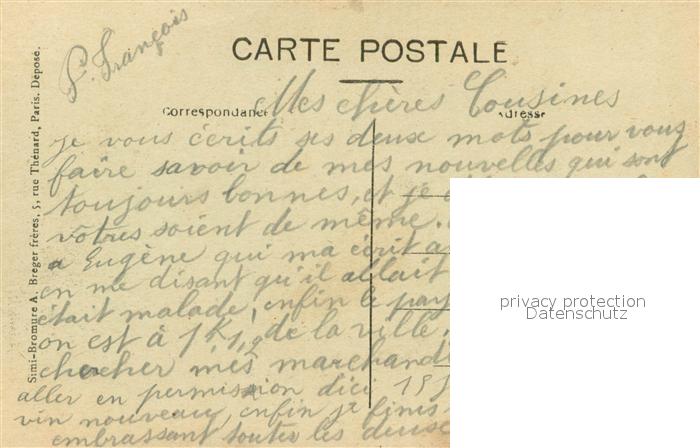 P. François
CARTE POSTALE
Correspondance
Adresse
Mes chères Cousines
je vous écrits ses deux mots pour vous
faire savoir de mes nouvelles qui sont
toujours bonnes, et je
votres soient de même.
a Eugène qui ma écrit
en me disant qu'il allait
était malade, enfin le pays
on est à 1 K 1/2 de la ville.
chercher mes marchandi
aller en permission dici 15
vin nouveau, enfin je finis
embrassant toutes les deux
Simi-Bromure A. Breger frères, 5, rue Thénard, Paris. Déposé.
privacy protection
Datenschutz